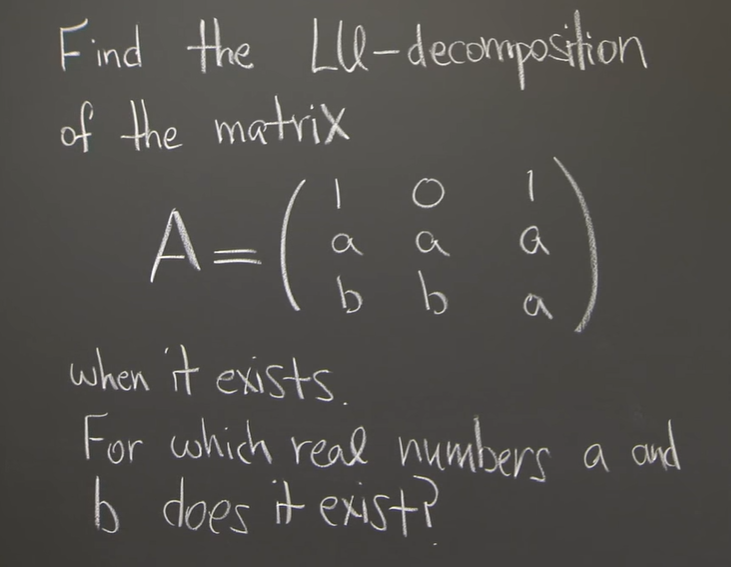 Find the LU-decomposition
of the matrix
A = ( 1 0 1
a a a
b b a )
when it exists.
For which real numbers a and
b does it exist?